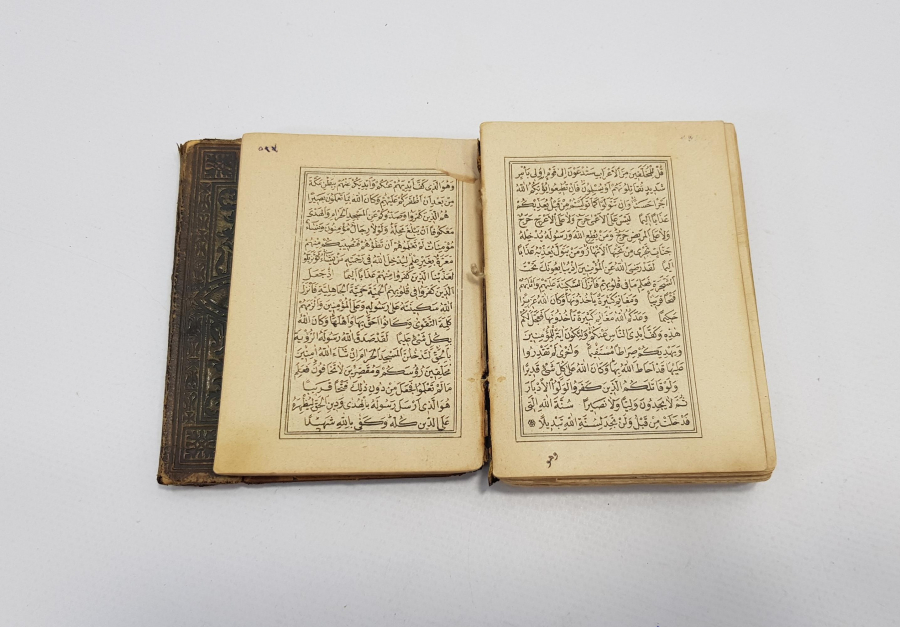 قُلْ لِلْمُخَلَّفِينَ مِنَ الْأَعْرَابِ سَتُدْعَوْنَ إِلَى قَوْمٍ أُولِي بَأْسٍ
شَدِيدٍ تُقَاتِلُونَهُمْ أَوْ يُسْلِمُونَ فَإِنْ تُطِيعُوا يُؤْتِكُمُ اللهُ
أَجْرًا حَسَنًا وَإِنْ تَتَوَلَّوْا كَمَا تَوَلَّيْتُمْ مِنْ قَبْلُ يُعَذِّبْكُمْ
عَذَابًا أَلِيمًا لَيْسَ عَلَى الْأَعْمَى حَرَجٌ وَلَا عَلَى الْأَعْرَجِ حَرَجٌ
وَلَا عَلَى الْمَرِيضِ حَرَجٌ وَمَنْ يُطِعِ اللهَ وَرَسُولَهُ يُدْخِلْهُ
جَنَّاتٍ تَجْرِي مِنْ تَحْتِهَا الْأَنْهَارُ وَمَنْ يَتَوَلَّ يُعَذِّبْهُ عَذَابًا
أَلِيمًا لَقَدْ رَضِيَ اللهُ عَنِ الْمُؤْمِنِينَ إِذْ يُبَايِعُونَكَ تَحْتَ
الشَّجَرَةِ فَعَلِمَ مَا فِي قُلُوبِهِمْ فَأَنْزَلَ السَّكِينَةَ عَلَيْهِمْ وَأَثَابَهُمْ
فَتْحًا قَرِيبًا وَمَغَانِمَ كَثِيرَةً يَأْخُذُونَهَا وَكَانَ اللهُ عَزِيزًا
حَكِيمًا وَعَدَكُمُ اللهُ مَغَانِمَ كَثِيرَةً تَأْخُذُونَهَا فَعَجَّلَ لَكُمْ
هَذِهِ وَكَفَّ أَيْدِيَ النَّاسِ عَنْكُمْ وَلِتَكُونَ آيَةً لِلْمُؤْمِنِينَ
وَيَهْدِيَكُمْ صِرَاطًا مُسْتَقِيمًا وَأُخْرَى لَمْ تَقْدِرُوا
عَلَيْهَا قَدْ أَحَاطَ اللهُ بِهَا وَكَانَ اللهُ عَلَى كُلِّ شَيْءٍ قَدِيرًا
وَلَوْ قَاتَلَكُمُ الَّذِينَ كَفَرُوا لَوَلَّوُا الْأَدْبَارَ
ثُمَّ لَا يَجِدُونَ وَلِيًّا وَلَا نَصِيرًا سُنَّةَ اللهِ الَّتِي
قَدْ خَلَتْ مِنْ قَبْلُ وَلَنْ تَجِدَ لِسُنَّةِ اللهِ تَبْدِيلًا
وهو
وَهُوَ الَّذِي كَفَّ أَيْدِيَهُمْ عَنْكُمْ وَأَيْدِيَكُمْ عَنْهُمْ بِبَطْنِ مَكَّةَ
مِنْ بَعْدِ أَنْ أَظْفَرَكُمْ عَلَيْهِمْ وَكَانَ اللهُ بِمَا تَعْمَلُونَ بَصِيرًا
هُمُ الَّذِينَ كَفَرُوا وَصَدُّوكُمْ عَنِ الْمَسْجِدِ الْحَرَامِ وَالْهَدْيَ
مَعْكُوفًا أَنْ يَبْلُغَ مَحِلَّهُ وَلَوْلَا رِجَالٌ مُؤْمِنُونَ وَنِسَاءٌ
مُؤْمِنَاتٌ لَمْ تَعْلَمُوهُمْ أَنْ تَطَئُوهُمْ فَتُصِيبَكُمْ مِنْهُمْ
مَعَرَّةٌ بِغَيْرِ عِلْمٍ لِيُدْخِلَ اللهُ فِي رَحْمَتِهِ مَنْ يَشَاءُ لَوْ تَزَيَّلُوا
لَعَذَّبْنَا الَّذِينَ كَفَرُوا مِنْهُمْ عَذَابًا أَلِيمًا إِذْ جَعَلَ
الَّذِينَ كَفَرُوا فِي قُلُوبِهِمُ الْحَمِيَّةَ حَمِيَّةَ الْجَاهِلِيَّةِ فَأَنْزَلَ
اللهُ سَكِينَتَهُ عَلَى رَسُولِهِ وَعَلَى الْمُؤْمِنِينَ وَأَلْزَمَهُمْ
كَلِمَةَ التَّقْوَى وَكَانُوا أَحَقَّ بِهَا وَأَهْلَهَا وَكَانَ اللهُ
بِكُلِّ شَيْءٍ عَلِيمًا لَقَدْ صَدَقَ اللهُ رَسُولَهُ الرُّؤْيَا
بِالْحَقِّ لَتَدْخُلُنَّ الْمَسْجِدَ الْحَرَامَ إِنْ شَاءَ اللهُ آمِنِينَ
مُحَلِّقِينَ رُءُوسَكُمْ وَمُقَصِّرِينَ لَا تَخَافُونَ فَعَلِمَ
مَا لَمْ تَعْلَمُوا فَجَعَلَ مِنْ دُونِ ذَلِكَ فَتْحًا قَرِيبًا
هُوَ الَّذِي أَرْسَلَ رَسُولَهُ بِالْهُدَى وَدِينِ الْحَقِّ لِيُظْهِرَهُ
عَلَى الدِّينِ كُلِّهِ وَكَفَى بِاللهِ شَهِيدًا